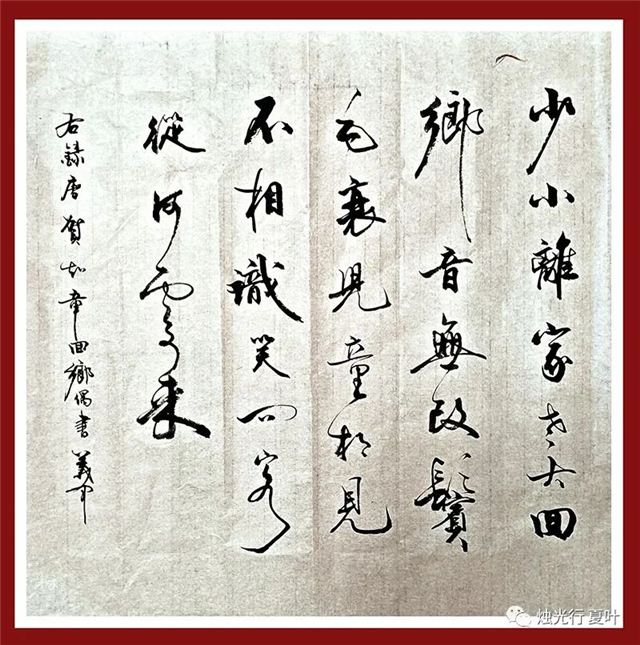 少小離家老大回
鄉音無改鬢
毛衰兒童相見
不相識笑問客
從何處来
右錄唐賀知章回鄉偶書 義中
烛光行夏叶